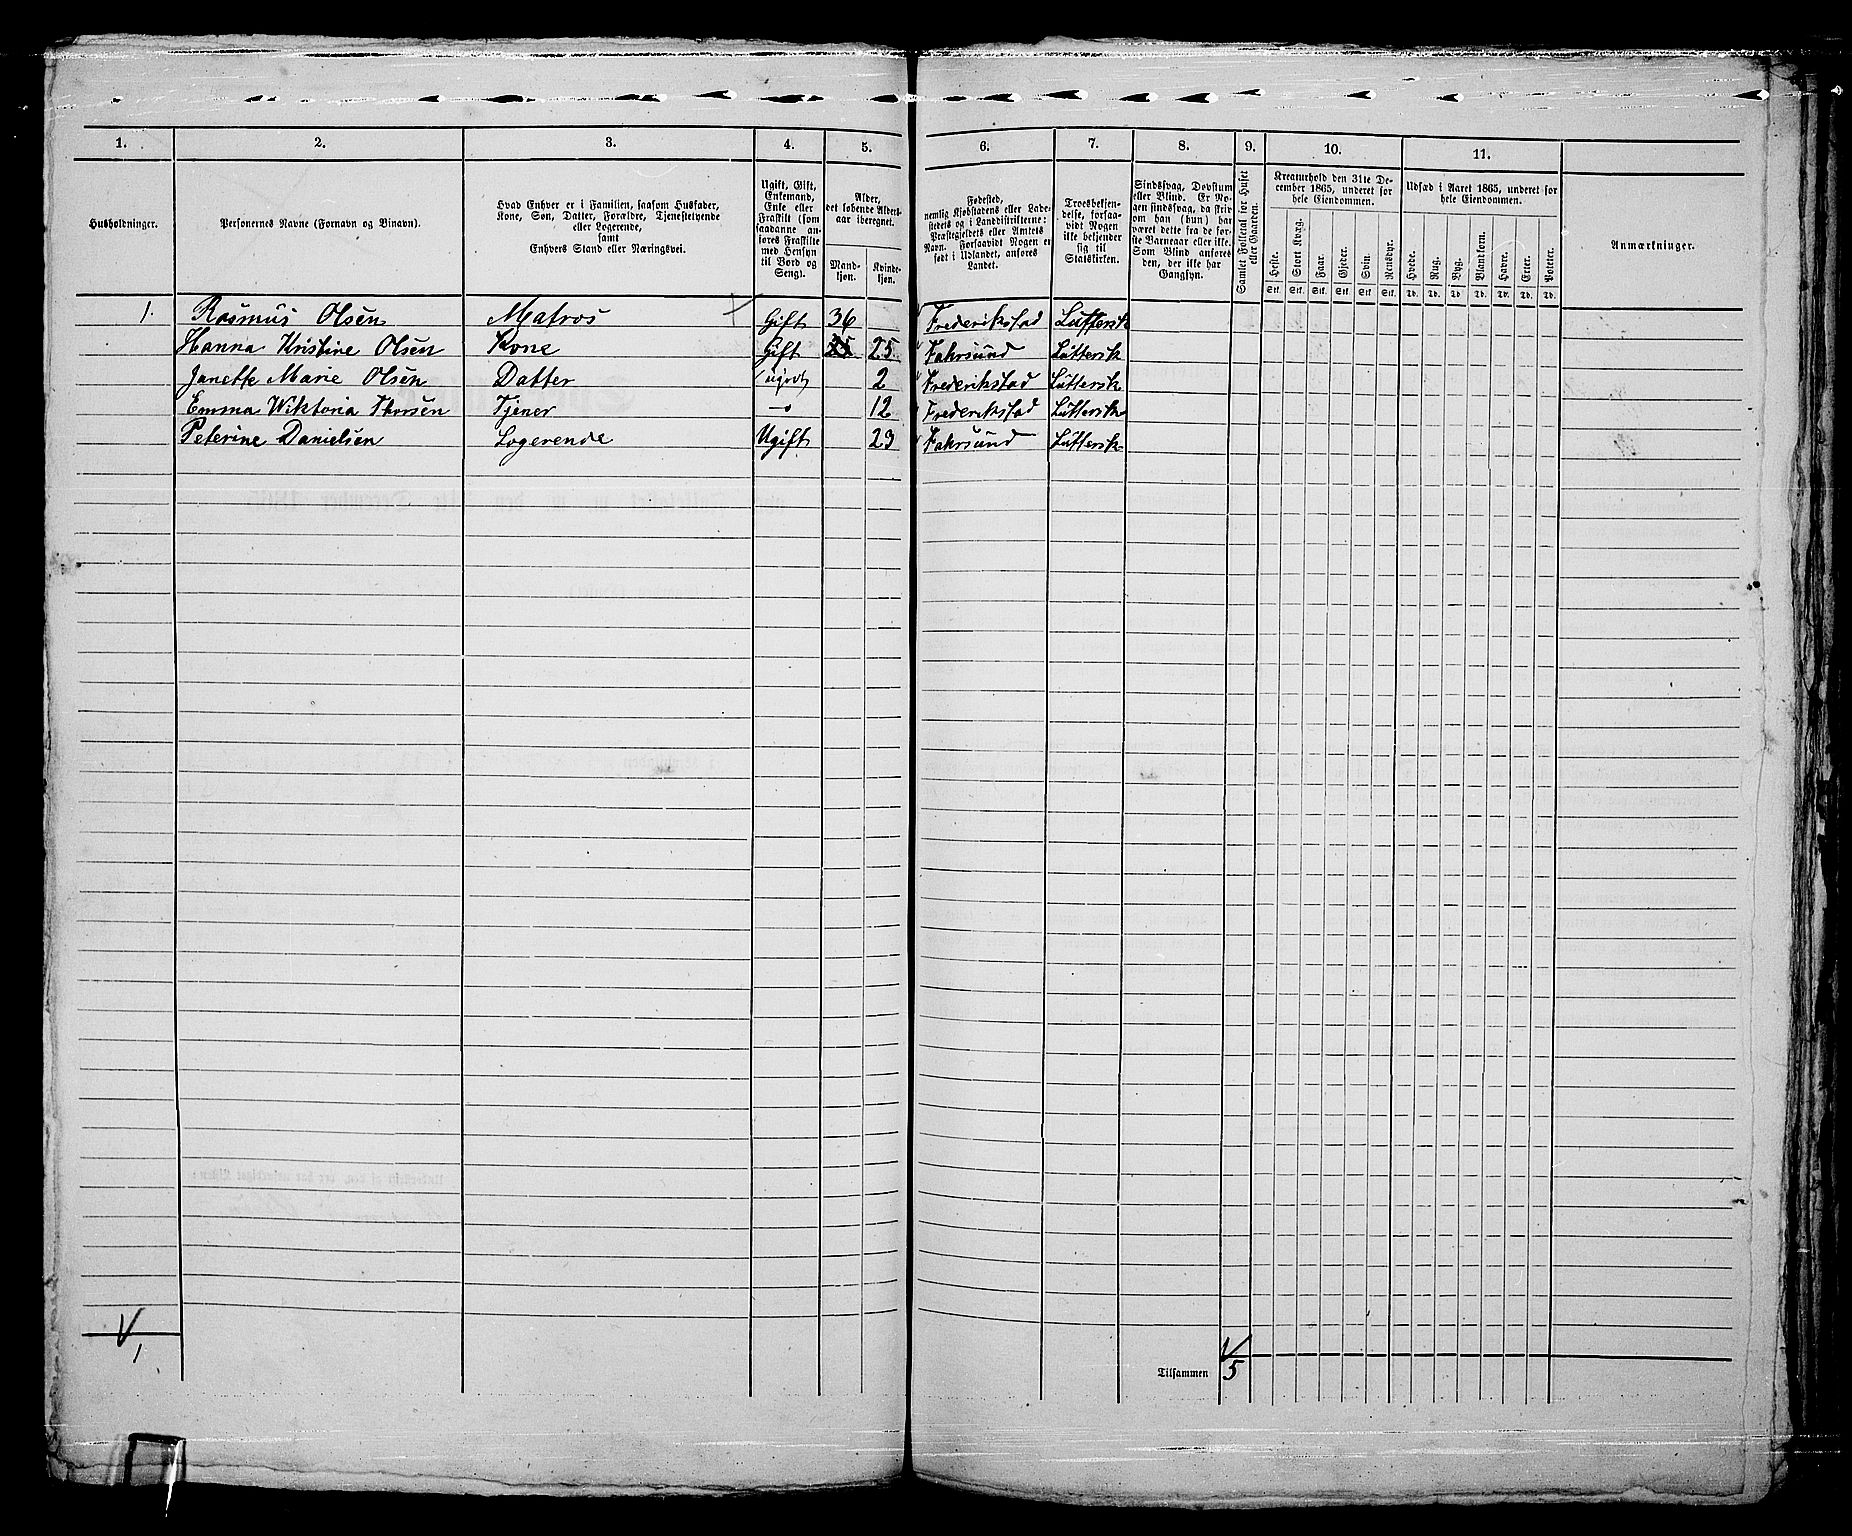 1. 2. 3. 4. 5. 6. 7. 8. 9. 10. 11.
Husholdninger.
Personernes Navne (Fornavn og Binavn).
Hvad Enhver er i Familien, saasom Husfader,
Kone, Søn, Datter, Forældre, Tjenestetyende
eller Logerende,
samt
Enhvers Stand eller Næringsvei.
Ugift, Gift,
Enkemand,
Enke eller
Fraskilt (som
saadanne an-
føres Fraskilte
med Hensyn
til Bord og
Seng).
Alder,
det løbende Alders-
aar iberegnet.
Mand-
kjøn.
Kvinde-
kjøn.
Fødested,
nemlig Kjøbstadens eller Lade-
stedets og i Landdistrikterne:
Præstegjeldets eller Amtets
Navn. Forsaavidt Nogen er
født i Udlandet, anføres
Landet.
Troesbekjen-
delse, forsaa-
vidt Nogen
ikke bekjender
sig til
Statskirken.
Sindssvag, Døvstum
eller Blind. Er No-
gen sindssvag, da skriv
om han (hun) har
været dette fra de før-
ste Barneaar eller ikke.
Som Blind anføres
den, der ikke har
Gangsyn.
Samlet Folketal for Huset
eller Gaarden.
Kreaturhold den 31te De-
cember 1865, underet for
hele Eiendommen.
Heste. Stort Kvæg. Faar. Gjeder. Svin. Rensdyr.
Stk. Stk. Stk. Stk. Stk. Stk.
Udsæd i Aaret 1865, underet for
hele Eiendommen.
Hvede. Rug. Byg. Blandkorn. Havre. Erter. Poteter.
Td. Td. Td. Td. Td. Td. Td.
Anmærkninger.
1. Rasmus Olsen Matros Gift 36 Frederikstad Luttersk
Hanna Kristine Olsen Kone Gift 25 25 Fahrsund Luttersk
Janette Marie Olsen Datter 2 Frederikstad Luttersk
Emma Wiktoria Thorsen Tjener —〃 12 Frederikstad Luttersk
Peterine Danielsen Logerende Ugift 23 Fahrsund Luttersk
1
Tilsammen 5